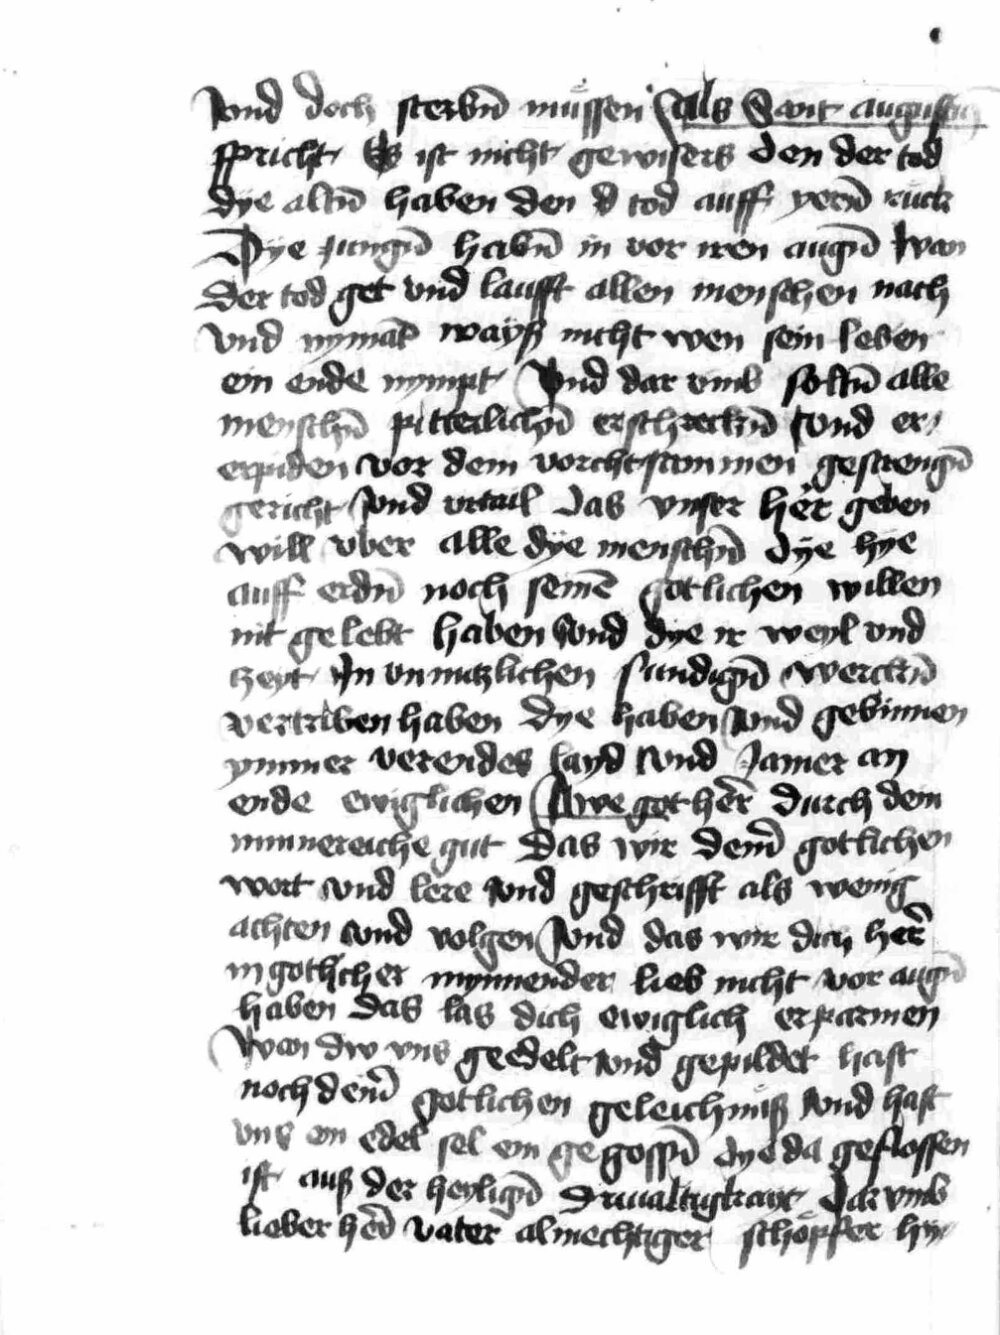 vnd doch sterbn̄ müssen Als Sant augustin
spricht Es ist nicht gewisers den der tod
dye altn̄ haben den d tod auff yren̄ ruck
Dye jungn̄ habn̄ in vor iren augn̄ wan
der tod get vnd laufft allen menschen nach
vnd nymāt wayß nicht wen sein leben
ein ende nympt Vnd dar vmb soltn̄ alle
menschn̄ pitterlichn̄ erschreckn̄ vnd er
erpiden vor dem vorchtsammen gestrengn̄
gericht vnd vrtail das vnser her̄ geben
will vber alle dye menschn̄ dye hye
auff erdn̄ noch seinē gotlichen willen
nit gelebt haben vnd dye ir weyl vnd
zeyt In vnnutzlichen sundign̄ werckn̄
vertriben haben dye haben vnd gebinnen
ymmer verendes layd vnd Jamer an
ende ewiglichen Awe got her̄ durch dein
minnereiche gut das wir deinē gotlichen
wort vnd lere vnd geschrifft als wenig
achten vnd volgen vnd das wir dich her̄
in gotlicher mynnender lieb nicht vor augn̄
haben das las dich ewiglich erparmen
wan dw vns geedelt vnd gepildet hast
noch deinē gotlichen geleichnuß vnd hast
vns ein edel sel ein gegossn̄ dye da geflossen
ist auß der heylign̄ driualtigkayt dar vmb
lieber her̄ vater almechtiger schöpfer hy